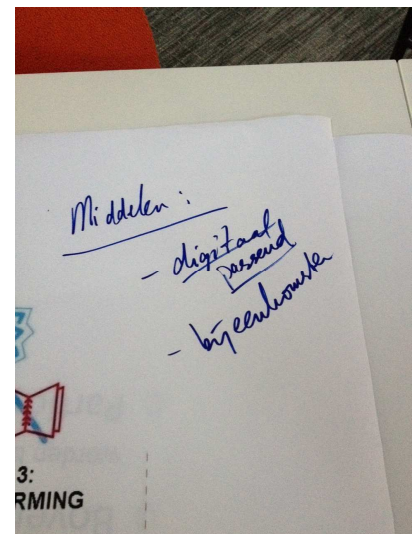 Middelen :
- digitaal
passend
- bijeenkomsten
3:
RMING